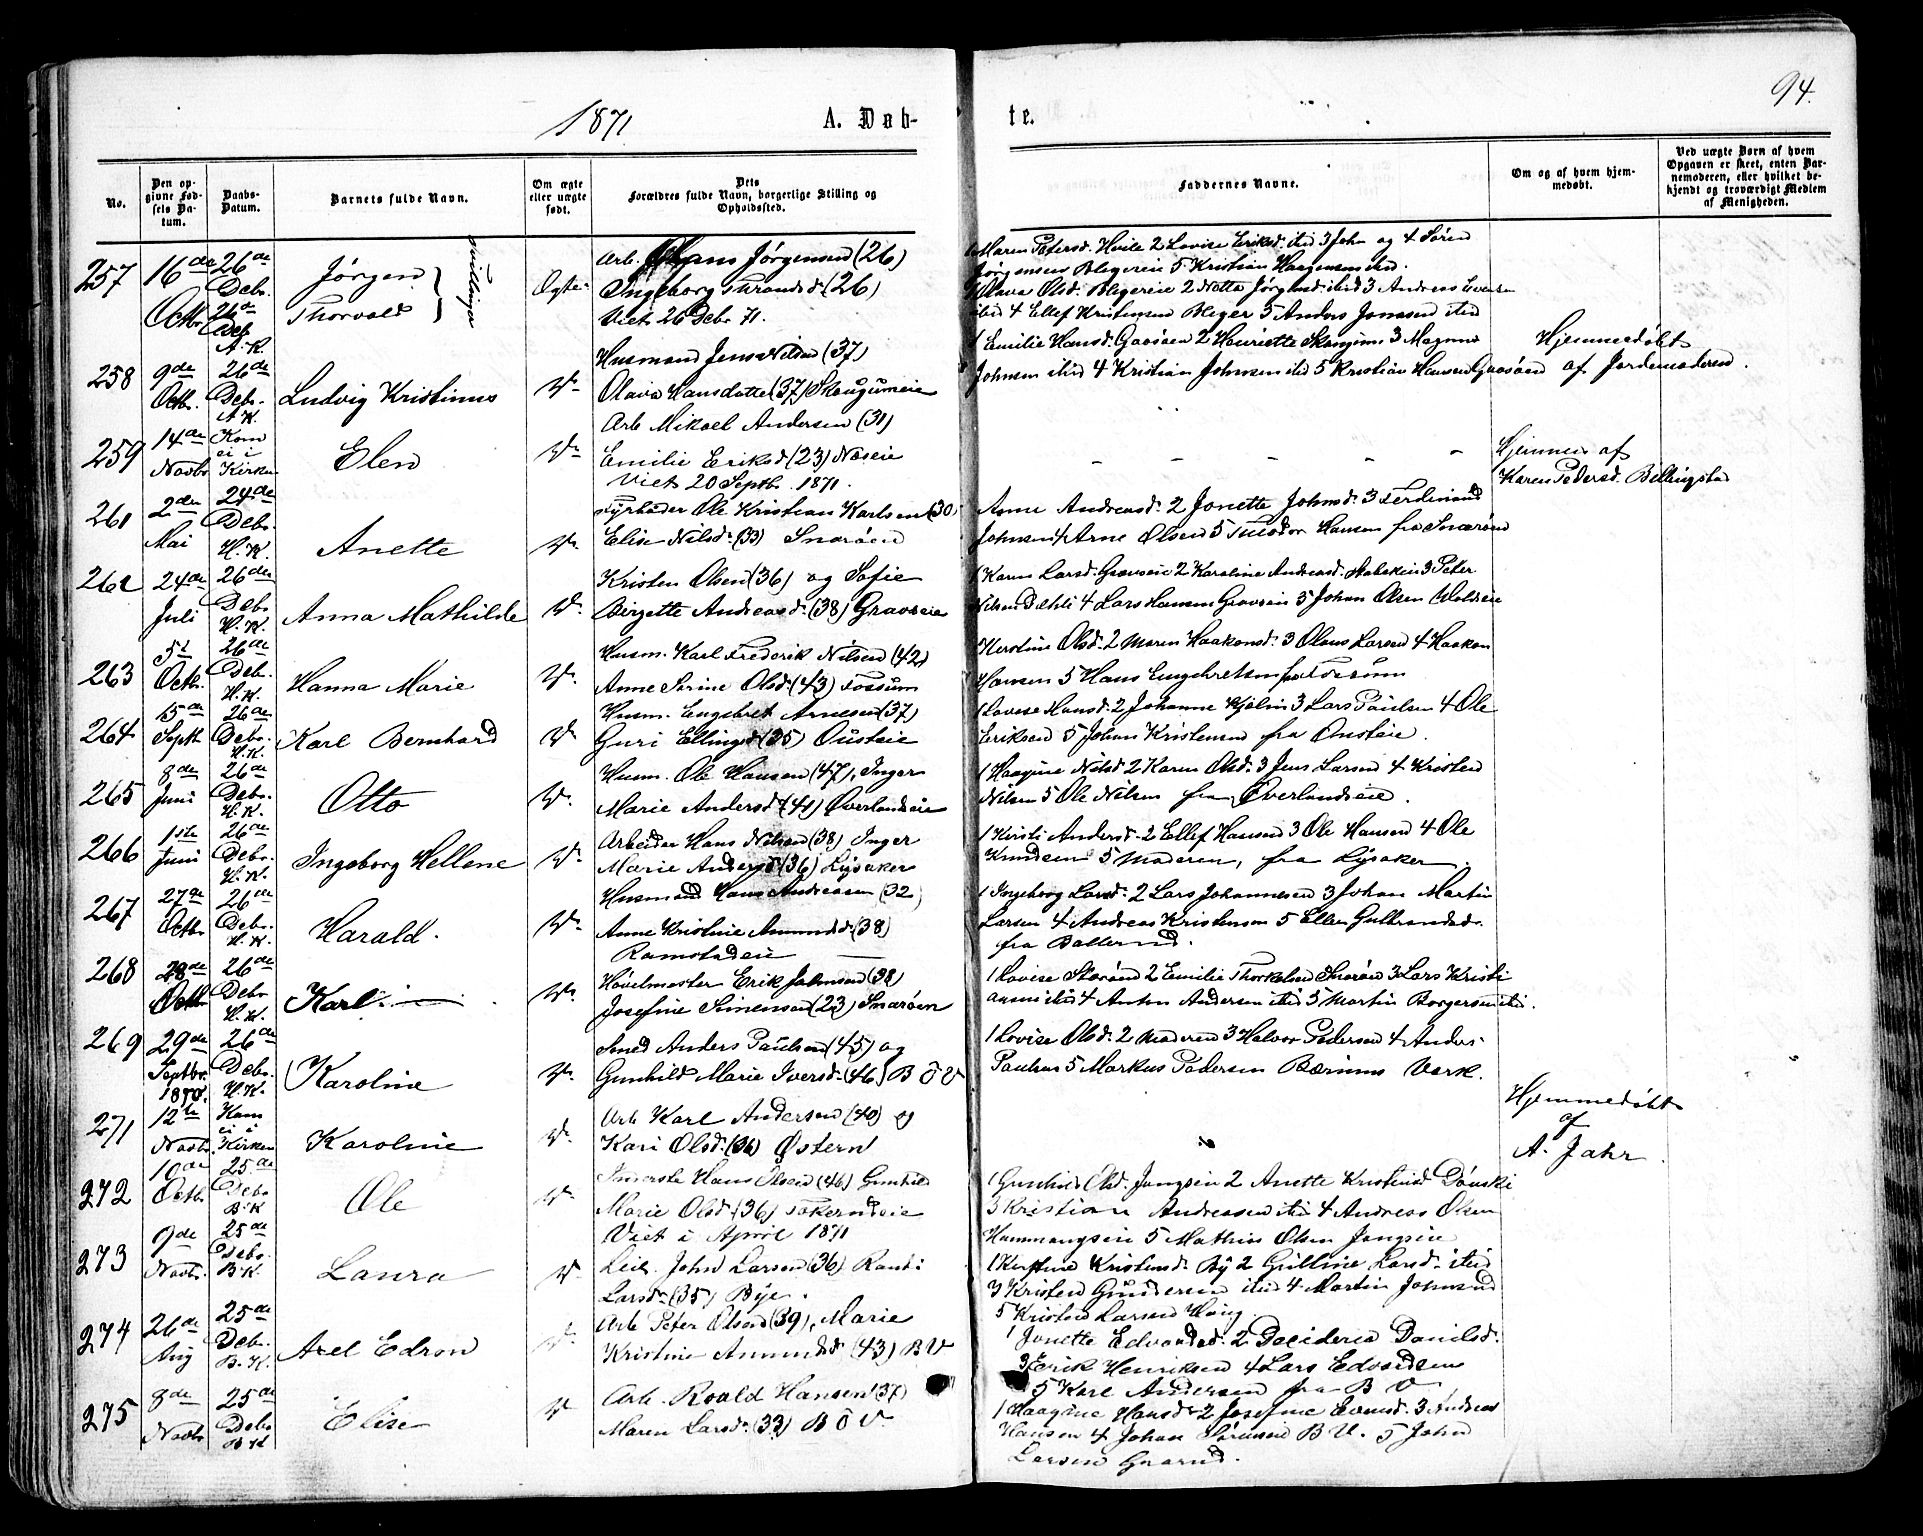 1871 A. Døb-
te.
94.
No.
Den op-
givne Fød-
sels Da-
tum.
Daabs-
Datum.
Barnets fulde Navn.
Om ægte
eller uægte
født.
Dets
Forældres fulde Navn, borgerlige Stilling og
Opholdssted.
Faddernes Navne.
Om og af hvem hjem-
medøbt.
Ved uægte Børn af hvem
Opgaven er skeet, enten Bar-
nemoderen, eller hvilket be-
kjendt og troværdigt Medlem
af Menigheden.
257 16de Octbr 26de Debr. 26de Debr A.K.
Jørgen
Thorvald
Tvillinger
Ægte
Arb. Hans Jørgensen (26)
Ingeborg Thronsd. (26)
Viet 26 Debr 71.
1 Maren Petersd. Hvile 2 Lovise Eriksd. itid 3 John og 4 Søren
Jørgensen Blegereie 5 Kristian Haagensen itid.
Olava Olsd. Blegereie 2 Netta Jørgensd itid 3 Andreas Evensen
itid 4 Ellef Kristensen Bleger 5 Anders Jonsen itid
258 9de Octbr. 26de Debr. A.K.
Ludvig Kristinus
Do
Husmand Jens Nilsen (37)
Olava Hansdatter (37) Skougumeie
1 Emilie Hansd. Gaasøen 2 Henriette Skougum 3 Magnus
Johnsen itid 4 Kristian Johnsen itid 5 Kristian Hansen Gaasøen
Hjemmedøbt
af Jordemoderen.
259 14de Novbr Kom ei i Kirken
Elen
Do
Arb Mikael Andersen (31)
Emilie Eriksd (23) Næseie
Viet 20 Septb. 1871.
Hjemme af
Karen Pedersd. Billingstad
261 2den Mai 24de Debr. H.K.
Anette
Do
Fyrbøder Ole Kristian Karlsen (30)
Elise Nilsd. (33) Snarøen
Anne Andreasd. 2 Jonette Johnsd. 3 Ferdinand
Johnsen 4 Arne Olsen 5 Theodor Hansen fra Snarøen
262 24de Juli 26de Debr H.K.
Anna Mathilde
Do
Kristen Olsen (36) og Sofie
Birgette Andreasd. (38) Gravseie
1 Karen Larsd. Gravseie 2 Karoline Andreasd. Stabekeie 3 Peter
Nilsen Dæhli 4 Lars Hansen Gravseie 5 Johan Olsen Voldseie
263 5te Octbr. 26de Debr. H.K.
Hanna Marie
Do
Husm. Karl Frederik Nilsen (42)
Anne Serine Olsd. (43) Fossum
Kerstine Olsd. 2 Maren Haakonsd. 3 Olaus Larsen 4 Haakon
Hansen 5 Hans Engebretsen fra Fossum
264 15de Septb 26de Debr. H.K.
Karl Bernhard
Do
Husm. Engebret Arnesen (37)
Guri Ellingsd. (35) Ousteie
1 Lovise Hansd. 2 Johanne Hjelm 3 Lars Paulsen 4 Ole
Eriksen 5 Johan Kristensen fra Ousteie.
265 8de Juni 26de Debr. H.K.
Otto
Do
Husm. Ole Hansen (47), Inger
Marie Andersd. (41) Øverlandseie
1 Haagine Nilsd. 2 Karen Olsd. 3 Jens Larsen 4 Kristen
Nilsen 5 Ole Nilsen fra Øverlandseie.
266 1ste Juni 26de Debr. H.K.
Ingeborg Hellene
Do
Arbeider Hans Nilsen (38) Inger
Marie Andersd. (36) Lysaker
1 Kirsti Andersd. 2 Ellef Hansen 3 Ole Hansen 4 Ole
Knudsen 5 Moderen, fra Lysaker.
267 27de Octbr 26de Debr. H.K.
Harald.
Do
Husmand Hans Andreasen (32)
Anne Kristine Amundsd. (38)
Ramstadeie
1 Ingeborg Larsd. 2 Lars Johannesen 3 Johan Martin
Larsen 4 Andreas Kristensen 5 Ellen Gulbrandsd.
fra Ballerud.
268 28de Octbr 26de Debr H.K.
Karl.
Do
Høvelmester Erik Johnsen (38)
Josefine Simensen (23) Snarøen
1 Lovise Snarøen 2 Emilie Thorkelsen Snarøen 3 Lars Kristi
ansen itid 4 Anton Andersen itid 5 Martin Borgersen itid.
269 29de Septbr. 1870. 26de Debr. H.K.
Karoline
Do
Smed Anders Paulsen (45) og
Gunhild Marie Iversd. (46) B Ö V
1 Lovise Olsd. 2 Moderen 3 Halvor Pedersen 4 Anders
Paulsen 5 Markus Pedersen Bærums Værk.
271 12te Novbr. Kom ei i Kirken
Karoline
Do
Arb Karl Andersen (40) og
Kari Olsd. (36) Østern
Hjemmedøbt
af
A. Jahr.
272 10de Octbr 25de Debr B.K
Ole
Do
Inderste Hans Olsen (46) Gunhild
Marie Olsd. (36) Tokerudeie
Viet i April 1871
1 Gunhild Olsd. Jongseie 2 Anette Kristensd Dønski
3 Kristian Andreassen itid 4 Andreas Olsen
Hammangseie 5 Mathias Olsen Jongseie
273 9de Novbr. 25de Debr. B.K.
Laura
Do
Leil. John Larsen (36) Randi
Larsd. (35) Bye.
1 Kerstine Kristensd. By 2 Gulline Larsd. itid
3 Kristen Gundersen itid 4 Martin Johnsrud
5 Kristen Larsen Haug.
274 26de Aug 25de Debr. B.K.
Axel Edron
Do
Arb Peter Olsen (39), Marie
Kristine Amundsd (43) B V
1 Jonette Edvardsd. 2 Decideria Danilsd.
3 Erik Henriksen 4 Lars Edvardsen
5 Karl Andersen fra B V
275 8de Novbr 25de Debr B.K
Elise
Do
Arb. Roald Hansen (37)
Maren Larsd. (33) B Ö V
1 Haagine Hansd. 2 Josefine Evensd. 3 Andreas
Hansen 4 Johan Sørensen B V. 5 John
Larsen Gaarud.